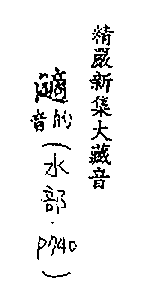 精嚴新集大藏音
音的(水部.P740)